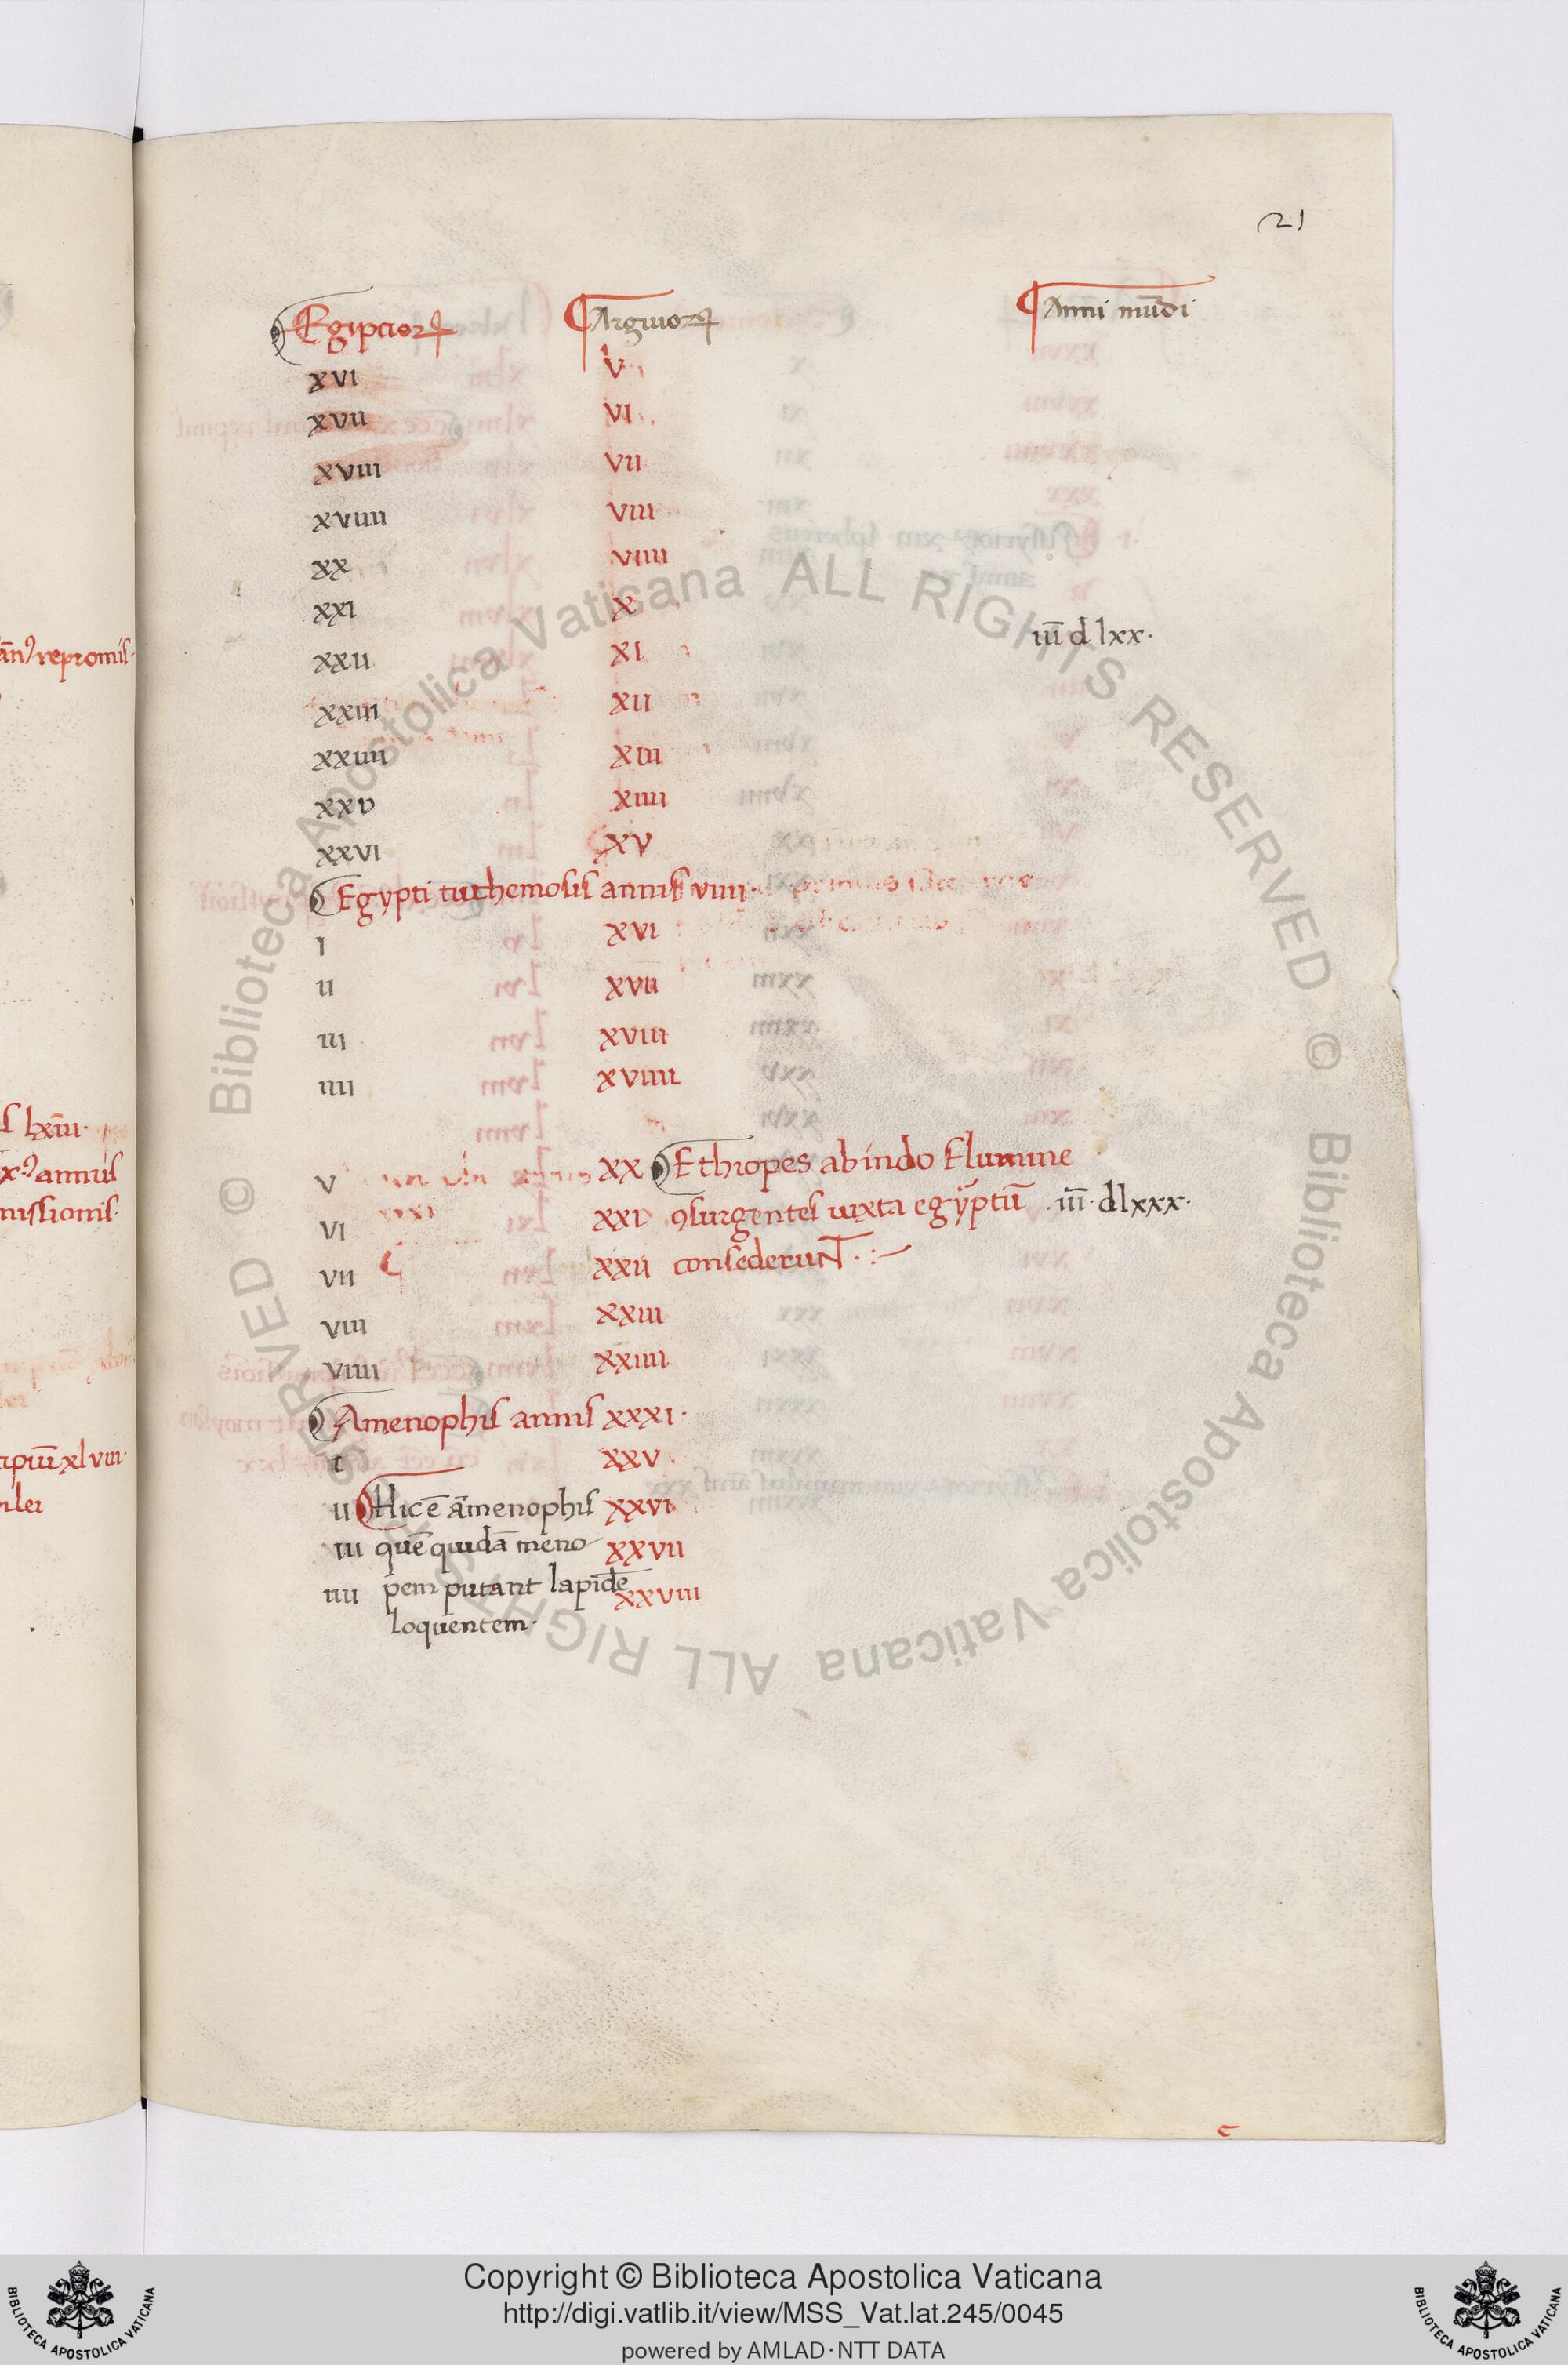 21
Egiptior̄ꝝ Argiuoꝝ Anni mūdi
xvi v
xvii vi
xviii vii
xviiii viii
xx viiii
xxi x
xxii xi iii̅ dlxx·
xxiii xii
xxiiii xiii
xxv xiiii
xxvi xv
Egypti tuthemosis annis viiii·
i xvi
ii xvii
iii xviii
iiii xviiii
v xx Ethiopes ab indo flumine
vi xxi ꝯsurgentes iuxta egyptū iii̅· dlxxx·
vii xxii consederunt·
viii xxiii
viiii xxiiii
Amenophis annis xxxi·
i xxv
ii Hic ē amenophis xxvi
iii quē quidā meno- xxvii
iiii pem putant lapidē xxviii
loquentem·
ān᷒ repromis-
lxiii·
annus
missionis·
xlviii·
Biblioteca Apostolica Vaticana ALL RIGHTS RESERVED ©
Biblioteca Apostolica Vaticana ALL RIGHTS RESERVED ©
Copyright © Biblioteca Apostolica Vaticana
http://digi.vatlib.it/view/MSS_Vat.lat.245/0045
powered by AMLAD·NTT DATA
BIBLIOTECA APOSTOLICA VATICANA
BIBLIOTECA APOSTOLICA VATICANA